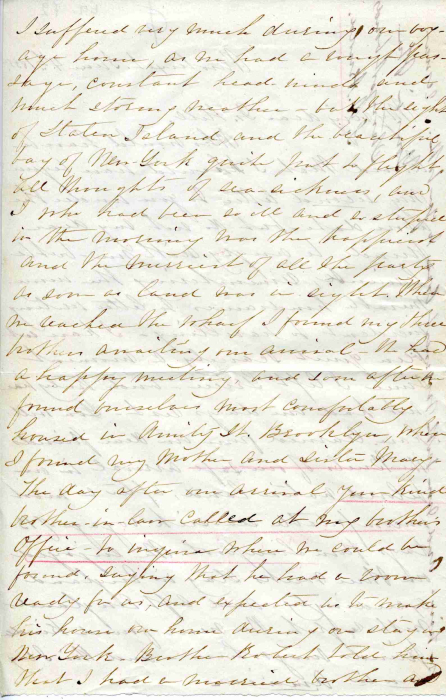 I suffered very much during our voy-
age home, as we had a rough pas-
sage, constant head winds and
much stormy weather - but the sight
of Staten Island and the beautiful
bay of New-York quite put to flight
all thoughts of sea-sickness, and
I who had been so ill and so stupid
in the morning was the happiest
and the merriest of all the party
as soon as land was in sight. When
we reached the wharf I found my three
brothers awaiting our arrival - We had
a happy meeting and soon after
found ourselves most comfortably
housed in Amity St. Brooklyn, where
I found my Mother and Sister Mary.
The day after our arrival your kind
brother-in-law called at my brothers
Office - to inquire where we could be
found, saying that he had a room
ready for us, and expected us to make
his house our home during our stay in
New York - Brother Robert told him
that I had a married brother and